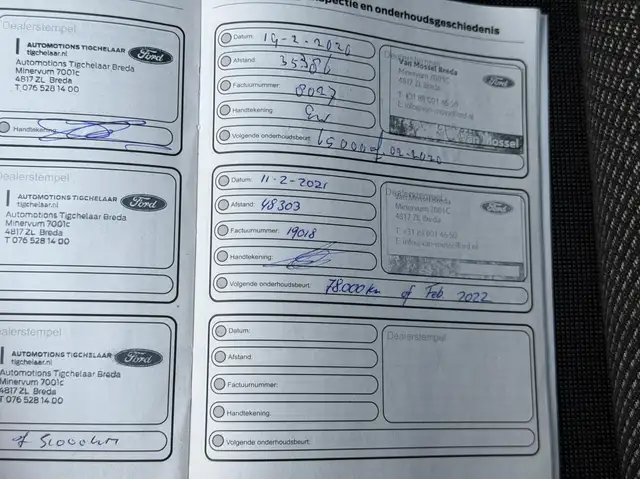 Dealerstempel
AUTOMOTIONS TIGCHELAAR
tigchelaar.nl
Ford
Automotions Tigchelaar Breda
Minervum 7001c
4817 ZL Breda
T 076 528 14 00
Handtekening
Dealerstempel
AUTOMOTIONS TIGCHELAAR
tigchelaar.nl
Ford
Automotions Tigchelaar Breda
Minervum 7001c
4817 ZL Breda
T 076 528 14 00
Dealerstempel
AUTOMOTIONS TIGCHELAAR
tigchelaar.nl
Ford
Automotions Tigchelaar Breda
Minervum 7001c
4817 ZL Breda
T 076 528 14 00
en onderhoudsgeschiedenis
Datum: 19-2-2020
Afstand: 35386
Factuurnummer: 8027
Handtekening:
Volgende onderhoudsbeurt:
Van Mossel Breda
Minervum 7001C
4817 ZL Breda
Ford
Van Mossel
Datum: 11-2-2021
Afstand: 48303
Factuurnummer: 19018
Handtekening:
Volgende onderhoudsbeurt: 78.000 km of Feb. 2022
Dealerstempel
Van Mossel Breda
Minervum 7001C
4817 ZL Breda
Ford
Datum:
Afstand:
Factuurnummer:
Handtekening:
Volgende onderhoudsbeurt:
Dealerstempel